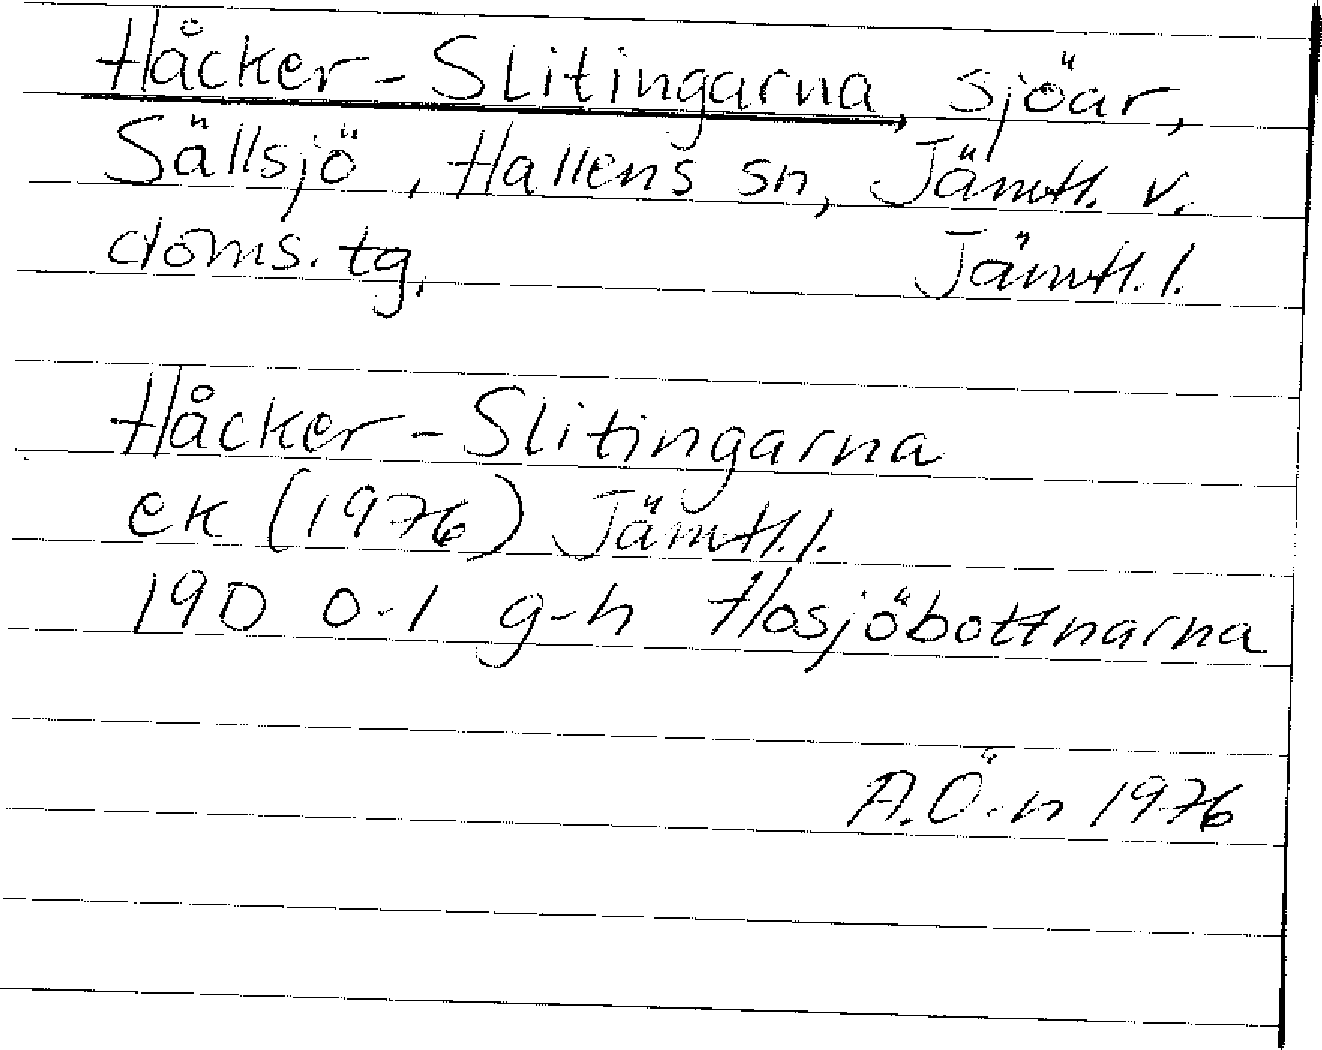 Håcker-Slitingarna, sjöar,
Sällsjö, Hallens sn, Jämtl. v.
doms. tg. Jämtl. l.
Håcker-Slitingarna
ek (1976) Jämtl. l.
19D 0-1 g-h Hosjöbottnarna
A.Ö-n 1976